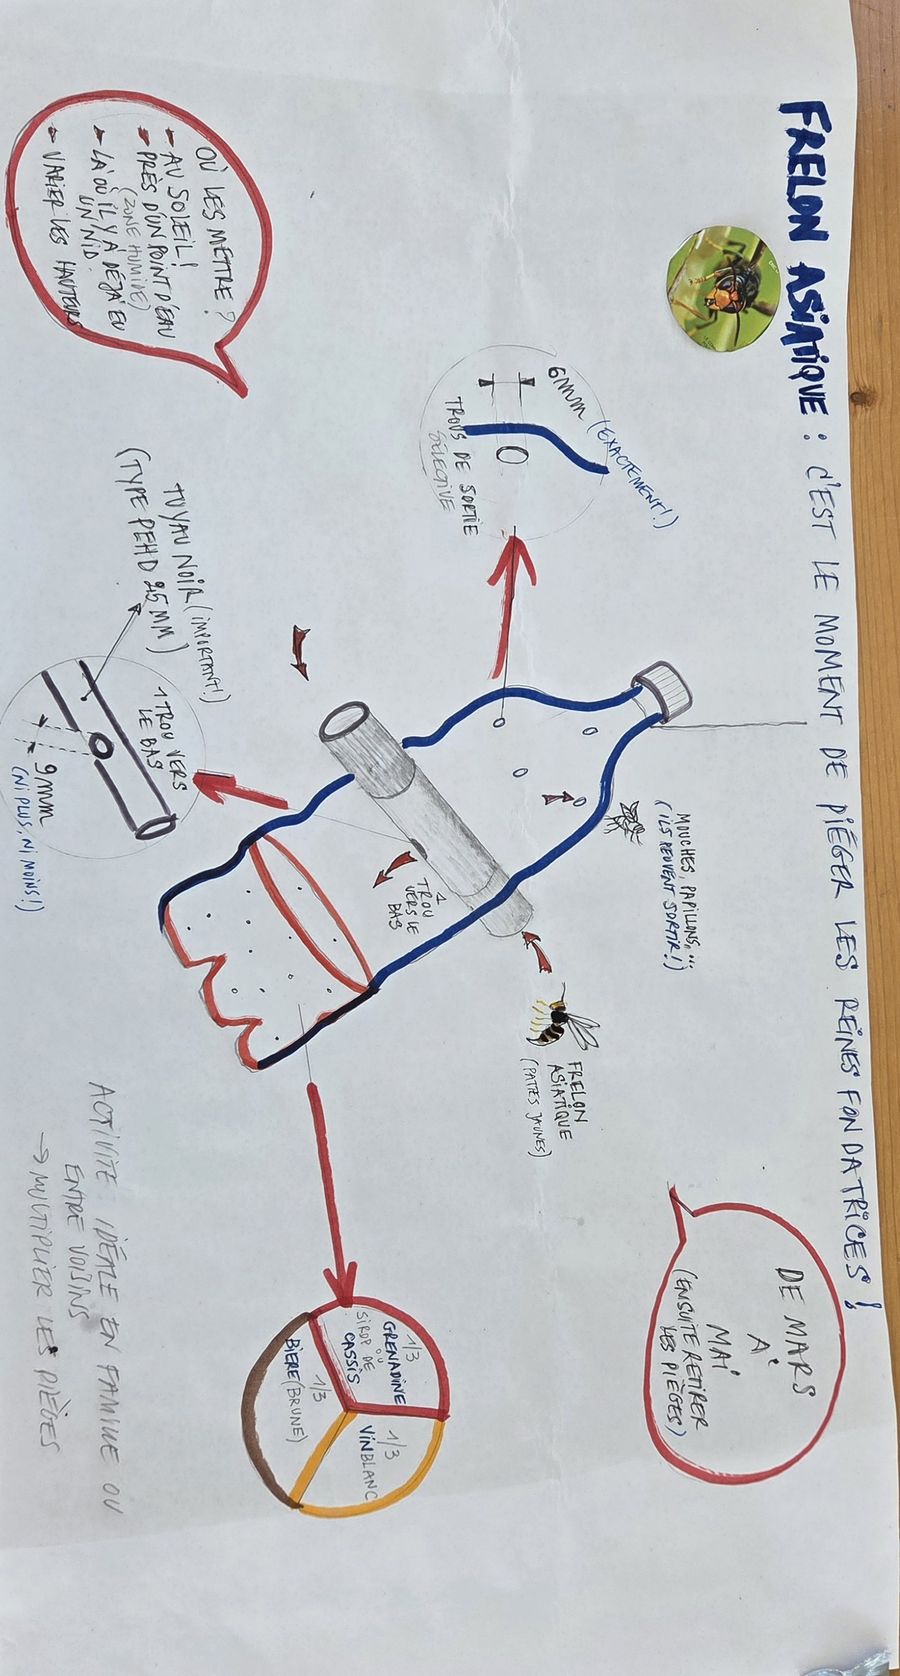 FRELON ASIATIQUE : C'EST LE MOMENT DE PIÉGER LES REINES FONDATRICES !
DE MARS
À
MAI
(ENSUITE RETIRER
LES PIÈGES)
MOUCHES, PAPILLONS,...
(ILS PEUVENT SORTIR!)
6MM (EXACTEMENT!)
TROUS DE SORTIE
SÉLECTIVE
FRELON
ASIATIQUE
(PATTES JAUNES)
1
TROU
VERS LE
BAS
1/3
GRENADINE
OU
SIROP DE
CASSIS
1/3
VIN BLANC
1/3
BIÈRE (BRUNE)
OÙ LES METTRE ?
AU SOLEIL !
PRÈS D'UN POINT D'EAU
(ZONE HUMIDE)
LÀ OÙ IL Y A DÉJÀ EU
UN NID.
VARIER LES HAUTEURS
TUYAU NOIR (IMPORTANT!)
(TYPE PEHD 25MM)
1 TROU VERS
LE BAS
9MM
(NI PLUS, NI MOINS!)
ACTIVITÉ : IDÉALE EN FAMILLE OU
ENTRE VOISINS
→ MULTIPLIER LES PIÈGES